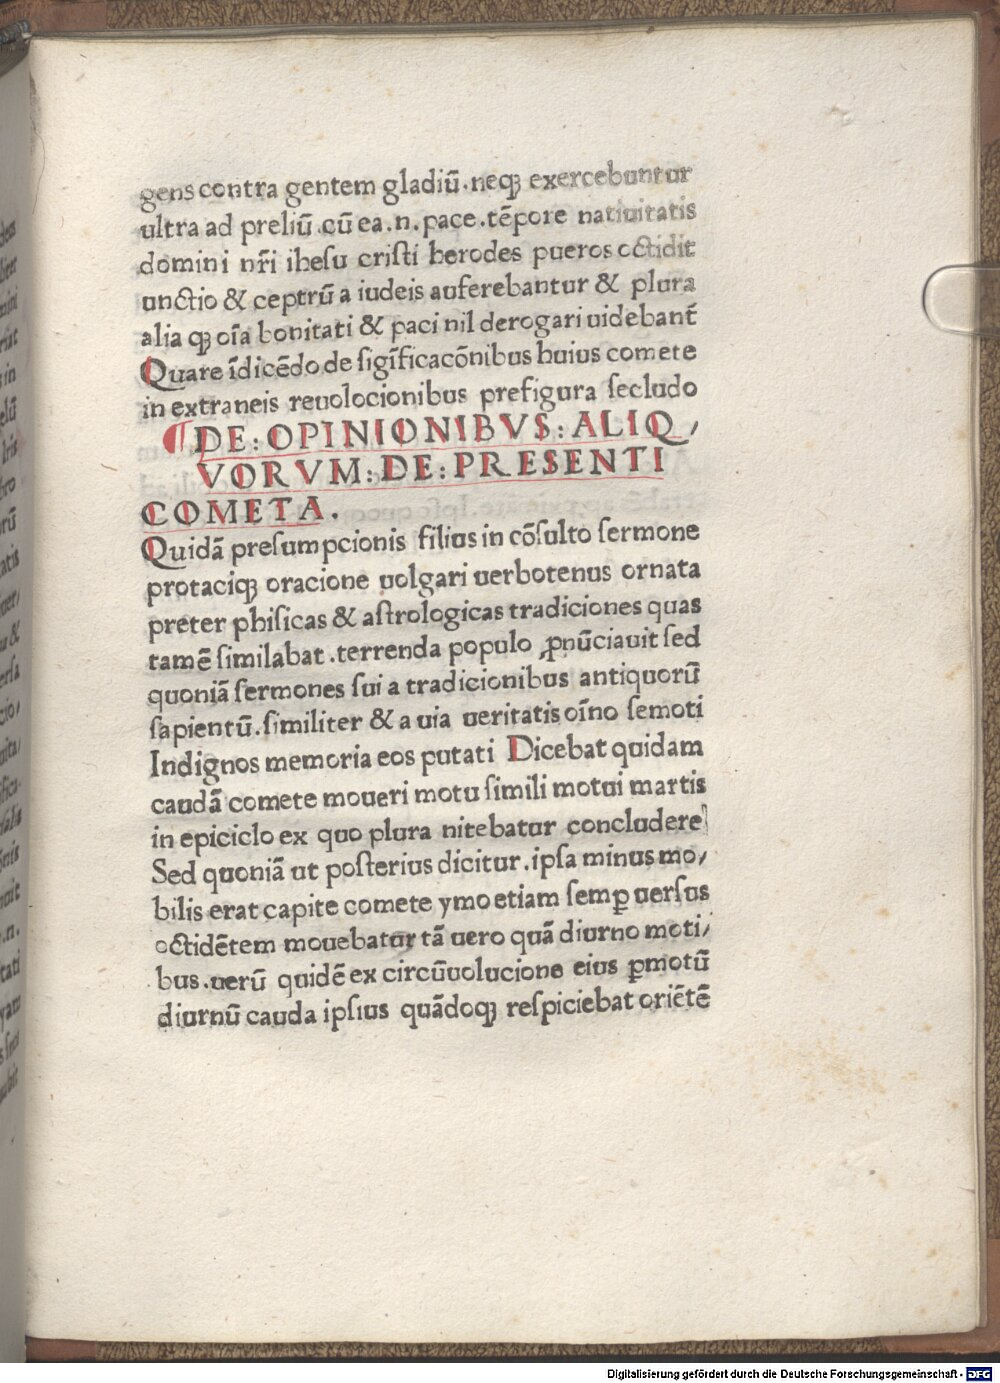 gens contra gentem gladiū.neqꝫ exercebuntur
ultra ad preliū.cū ea.n.pace.tēpore natiuitatis
domini nr̄i ihesu cristi herodes pueros occidit
unctio & ceptrū a iudeis auferebantur & plura
alia qꝫ oīa bonitati & paci nil derogari uidebant̄
Quare īdicēdo de sigīficacōnibus huius comete
in extraneis reuolocionibus prefigura secludo
¶ DE:OPINIONIBVS:ALIQ,
VORVM:DE:PRESENTI
COMETA.
Quidā presumpcionis filius in cōsulto sermone
protaciqꝫ oracione uolgari uerbotenus ornata
preter phisicas & astrologicas tradiciones quas
tamē similabat.terrenda populo ꝓnūciauit sed
quoniā sermones sui a tradicionibus antiquorū
sapientū.similiter & a uia ueritatis oīno semoti
Indignos memoria eos putati Dicebat quidam
caudā comete moueri motu simili motui martis
in epiciclo ex quo plura nitebatur concludere
Sed quoniā ut posterius dicitur.ipsa minus mo/
bilis erat capite comete ymo etiam semꝑ uersus
occidētem mouebatur tā uero quā diurno moti/
bus.uerū quidē ex circūuolucione eius ꝑmotū
diurnū cauda ipsius quādoqꝫ respiciebat oriētē
Digitalisierung gefördert durch die Deutsche Forschungsgemeinschaft - DFG